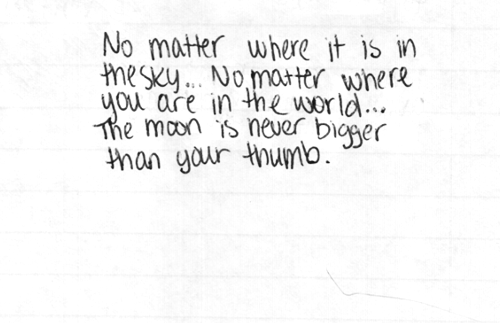 No matter where it is in
the sky... No matter where
you are in the world...
The moon is never bigger
than your thumb.